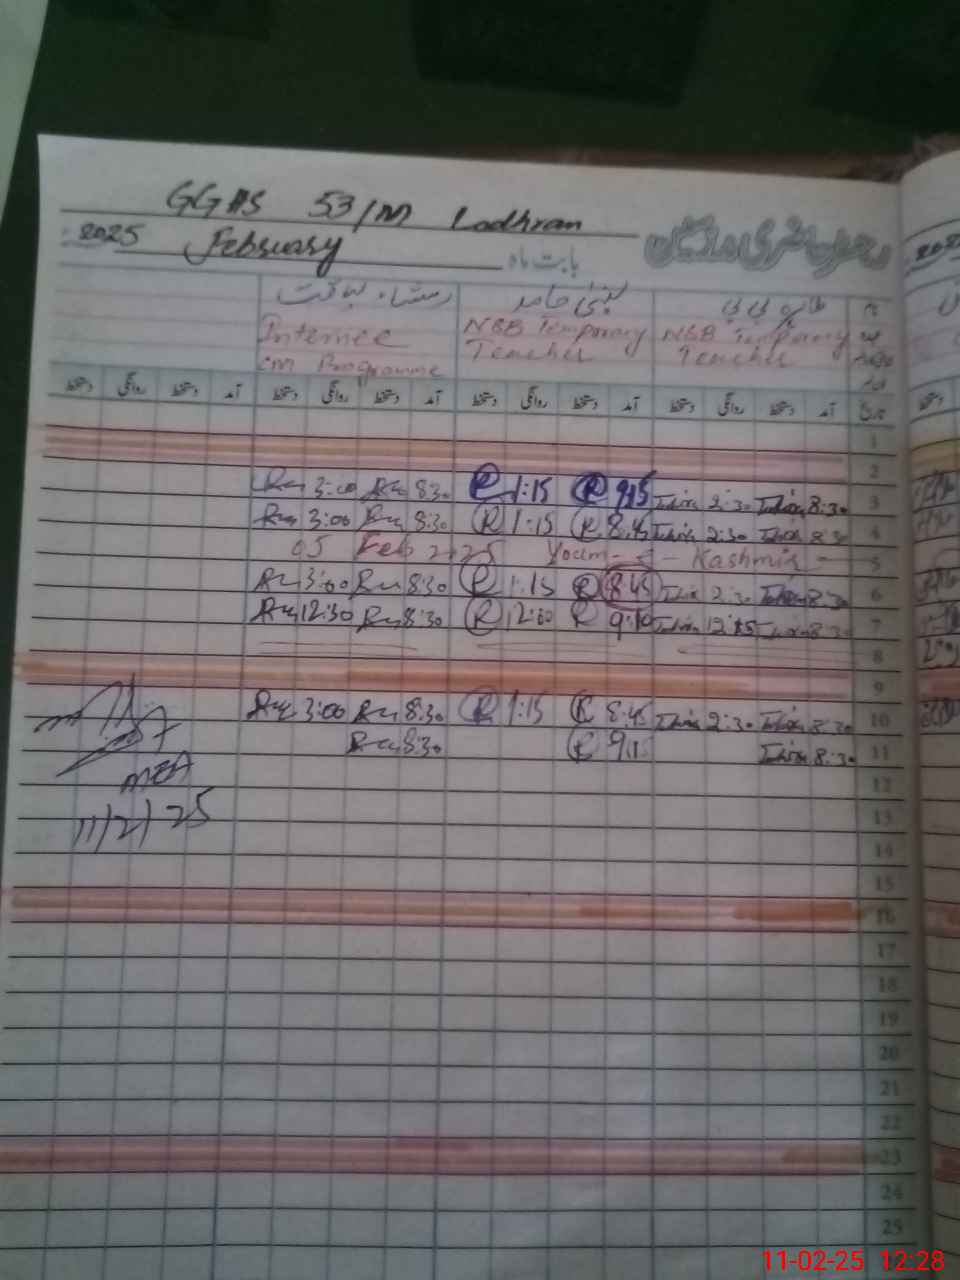 GGHS 53/M Lodhran
رجسٹر حاضری مدرسین
2025 February بابت ماہ
طاہرہ بی بی لبنیٰ حامد رمشاء لیاقت
NSB Temporary Teacher NSB Temporary Teacher Internee
CM Programme
تاریخ آمد دستخط روانگی دستخط آمد دستخط روانگی دستخط آمد دستخط روانگی دستخط آمد دستخط روانگی دستخط
1
2
3:00 8:30 R 1:15 R 9:15 2:30 8:30 3
3:00 8:30 R 1:15 R 8:45 2:30 8:30 4
05 Feb 2025 Youm-e-Kashmir 5
3:00 8:30 R 1:15 R 8:45 2:30 8:30 6
12:30 8:30 R 12:00 R 9:10 12:15 8:30 7
8
9
3:00 8:30 R 1:15 R 8:45 2:30 8:30 10
8:30 R 8:30 11
MEA
11/2/25
12
13
14
15
16
17
18
19
20
21
22
23
24
25
11-02-25 12:28